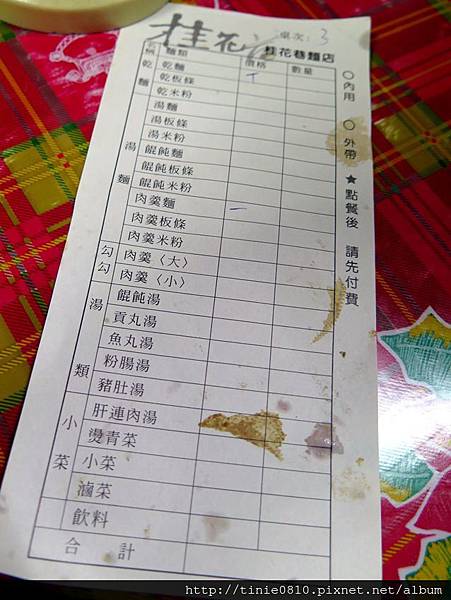 桂花
桌次：3
桂花巷麵店
麵類 價格 數量
乾麵
乾麵
乾板條
乾米粉
湯麵
湯麵
湯板條
湯米粉
餛飩麵
餛飩板條
餛飩米粉
肉羹麵
肉羹板條
肉羹米粉
勾勾
肉羹〈大〉
肉羹〈小〉
湯類
餛飩湯
貢丸湯
魚丸湯
粉腸湯
豬肚湯
肝連肉湯
小菜
燙青菜
小菜
滷菜
飲料
合計
○內用 ○外帶 ★點餐後 請先付費
http://tinie0810.pixnet.net/album